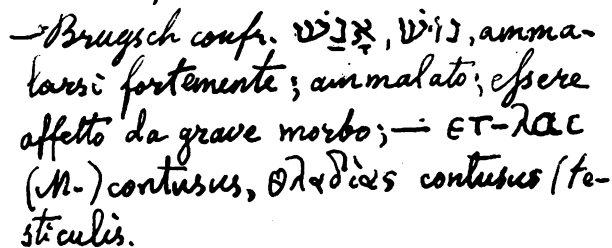 — Brugsch confr. אָנַשׁ, נוּשׁ, amma-
larsi fortemente; ammalato; essere
affetto da grave morbo; — ⲉⲧ-ⲗⲁⲥ
(M.) contusus, θλαδίας contusus (te-
sticulis.